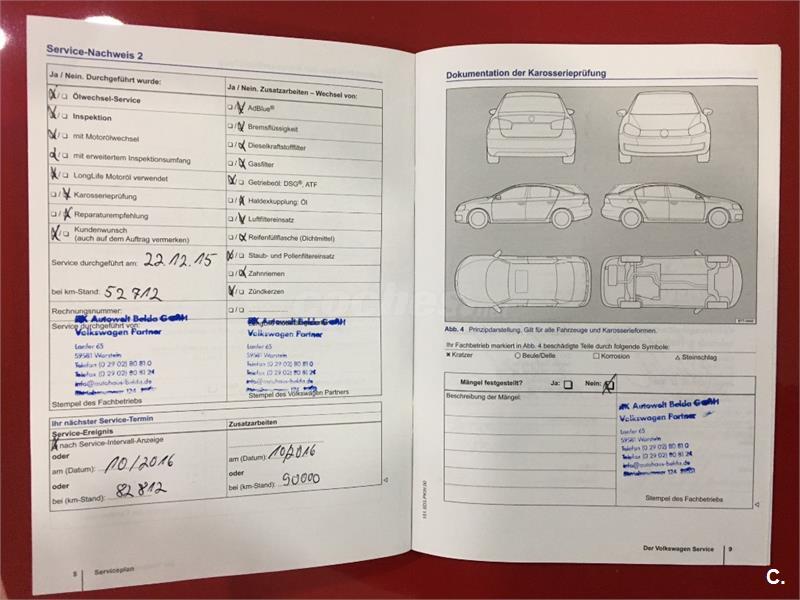 Service-Nachweis 2
Ja / Nein. Durchgeführt wurde:
Ölwechsel-Service
Inspektion
mit Motorölwechsel
mit erweitertem Inspektionsumfang
LongLife Motoröl verwendet
Karosserieprüfung
Reparaturempfehlung
Kundenwunsch
(auch auf dem Auftrag vermerken)
Service durchgeführt am: 22.12.15
bei km-Stand: 52812
Rechnungsnummer:
Autowelt Belda GmbH
Service durchgeführt von:
Volkswagen Partner
Lanfer 65
59581 Warstein
Telefon (0 29 02) 80 81 0
Telefax (0 29 02) 80 81 24
info@autohaus-belda.de
Stempel des Fachbetriebs
Ja / Nein. Zusatzarbeiten – Wechsel von:
AdBlue®
Bremsflüssigkeit
Dieselkraftstofffilter
Gasfilter
Getriebeöl: DSG®, ATF
Haldexkupplung: Öl
Luftfiltereinsatz
Reifenfüllflasche (Dichtmittel)
Staub- und Pollenfiltereinsatz
Zahnriemen
Zündkerzen
Autowelt Belda GmbH
Volkswagen Partner
Lanfer 65
59581 Warstein
Telefon (0 29 02) 80 81 0
Telefax (0 29 02) 80 81 24
info@autohaus-belda.de
Stempel des Volkswagen Partners
Ihr nächster Service-Termin
Service-Ereignis
nach Service-Intervall-Anzeige
oder
am (Datum): 10/2016
oder
bei (km-Stand): 82812
Zusatzarbeiten
am (Datum): 10/2016
oder
bei (km-Stand): 90000
8 Serviceplan
Dokumentation der Karosserieprüfung
Abb. 4 Prinzipdarstellung. Gilt für alle Fahrzeuge und Karosserieformen.
Ihr Fachbetrieb markiert in Abb. 4 beschädigte Teile durch folgende Symbole:
× Kratzer ○ Beule/Delle □ Korrosion △ Steinschlag
Mängel festgestellt? Ja: Nein:
Beschreibung der Mängel:
Autowelt Belda GmbH
Volkswagen Partner
Lanfer 65
59581 Warstein
Telefon (0 29 02) 80 81 0
Telefax (0 29 02) 80 81 24
info@autohaus-belda.de
Stempel des Fachbetriebs
Der Volkswagen Service 9
C.